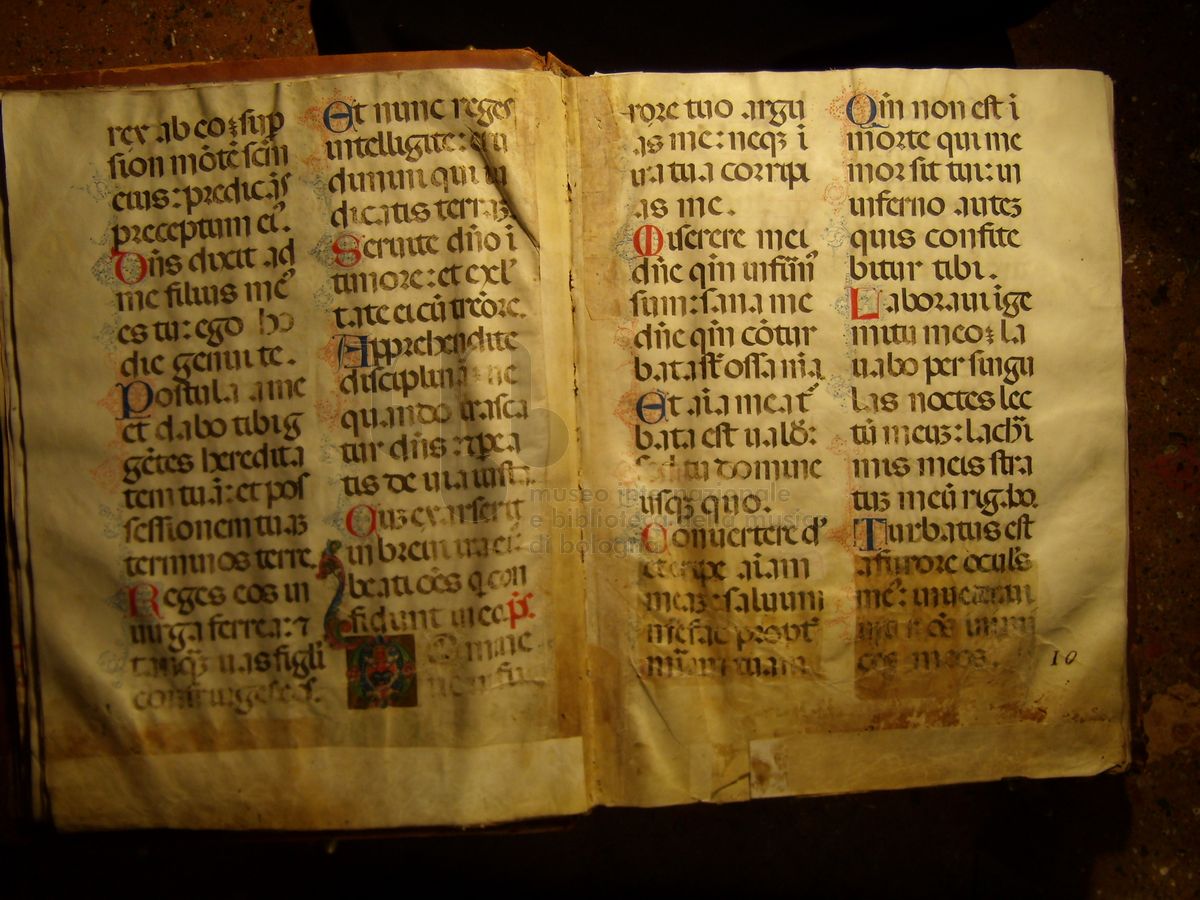 rex ab eo: sup
sion mōtē scm̄
eius: predicās
preceptum ei'.
Dn̄s dixit ad
me filius me'
es tu: ego ho
die genui te.
Postula a me
et dabo tibi g
gētes heredita
tem tuā: et pos
sessionem tuaꝫ
terminos terre.
Reges eos in
uirga ferrea: ⁊
tanqꝫ uas figli
confringes eos.
Et nunc reges
intelligite: eru
dimini qui iu
dicatis terraꝫ
Seruite dn̄o ī
timore: et exl'
tate ei cū treōre.
Apprehendite
disciplinā: ne
quando irasca
tur dn̄s: ⁊ pea
tis de uia iusta.
Cuꝫ exarserit
in breui ira ei':
beati oēs q con
fidunt in eo. ps.
Domine
ne in fu
rore tuo argu
as me: neqꝫ i
ira tua corripi
as me.
Miserere mei
dn̄e qm̄ infirm'
sum: sana me
dn̄e qm̄ cōtur
bata sūt ossa mīa
Et aīa mea t'
bata est ualđ:
sed tu domine
usqꝫ quo.
Conuertere d'
et eripe aīam
meaꝫ: saluum
me fac propt'
mīam tuam.
Qm̄ non est ī
morte qui me
mor sit tui: in
inferno auteꝫ
quis confite
bitur tibi.
Laboraui īge
mitu meo: la
uabo per singu
las noctes lec
tū meuꝫ: lachī
mis meis stra
tuꝫ meū rigabo.
Turbatus est
a furore ocul's
me': inueteraui
inter oēs inimi
cos meos.
10
museo internazionale
e biblioteca della musica
di bologna